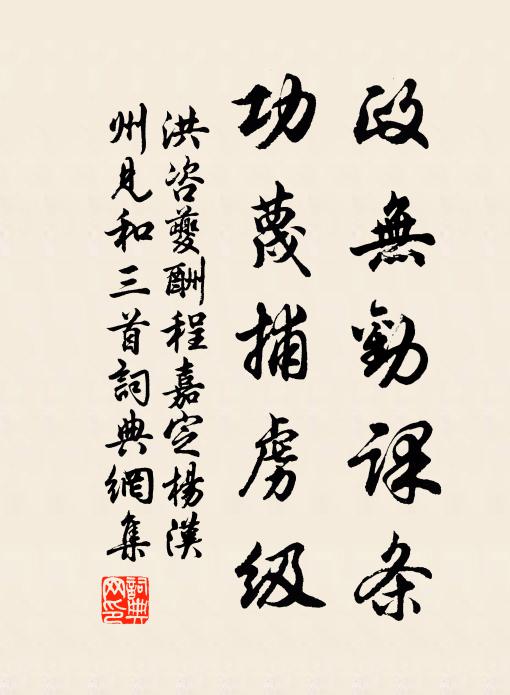 政無勸課条
功蔑捕虜級
洪咨夔酬程嘉定楊漢
州見和三首詞典網集
詞典網印